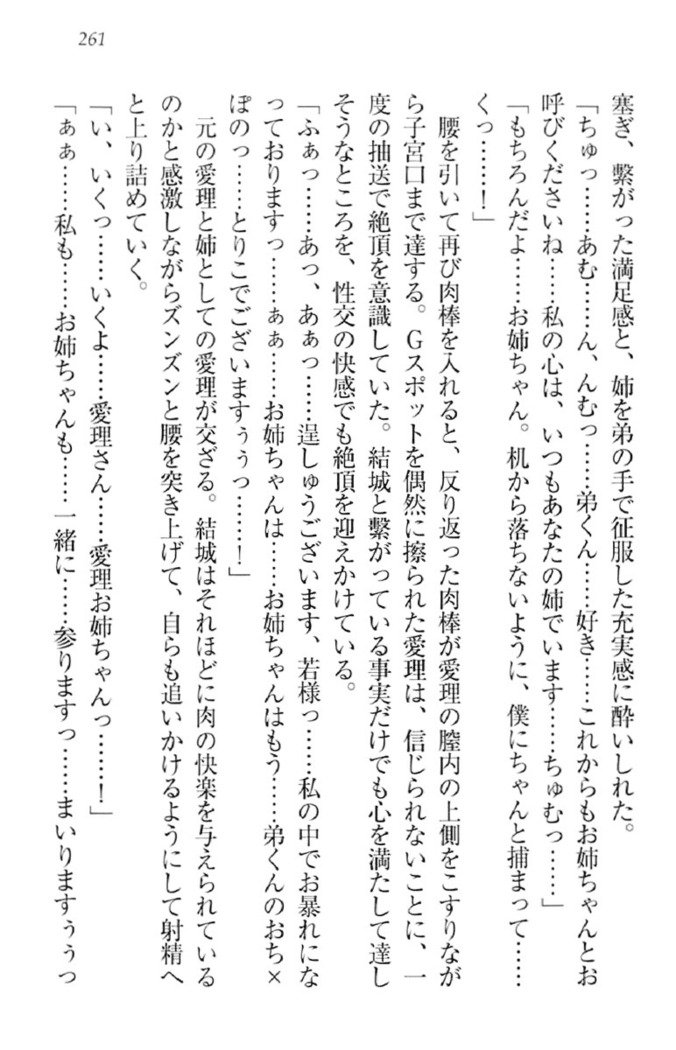 261
塞ぎ、繋がった満足感と、姉を弟の手で征服した充実感に酔いしれた。
「ちゅっ……あむ……ん、んむっ……弟くん……好き……これからもお姉ちゃんとお
呼びくださいね……私の心は、いつもあなたの姉でいます……ちゅむっ……」
「もちろんだよ……お姉ちゃん。机から落ちないように、僕にちゃんと捕まって……
くっ……！」
腰を引いて再び肉棒を入れると、反り返った肉棒が愛理の膣内の上側をこすりなが
ら子宮口まで達する。Gスポットを偶然に擦られた愛理は、信じられないことに、一
度の抽送で絶頂を意識していた。結城と繋がっている事実だけでも心を満たして達し
そうなところを、性交の快感でも絶頂を迎えかけている。
「ふぁっ……あっ、あぁっ……逞しゅうございます、若様っ……私の中でお暴れにな
っておりますっ……ぁぁ……お姉ちゃんは……お姉ちゃんはもう……弟くんのおち×
ぽのっ……とりこでございますぅぅっ……！」
元の愛理と姉としての愛理が交ざる。結城はそれほどに肉の快楽を与えられている
のかと感激しながらズンズンと腰を突き上げて、自らも追いかけるようにして射精へ
と上り詰めていく。
「い、いくっ……いくよ……愛理さん……愛理お姉ちゃんっ……！」
「ぁぁ……私も……お姉ちゃんも……一緒に……参りますっ……まいりますぅぅっ